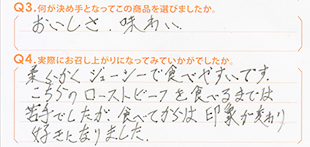 Q3.何が決め手となってこの商品を選びましたか。
おいしさ、味わい
Q4.実際にお召し上がりになってみていかがでしたか。
柔らかく ジューシーで食べやすいです。
こちらの ローストビーフを食べるまでは
苦手でしたが、食べてからは 印象が変わり
好きになりました。